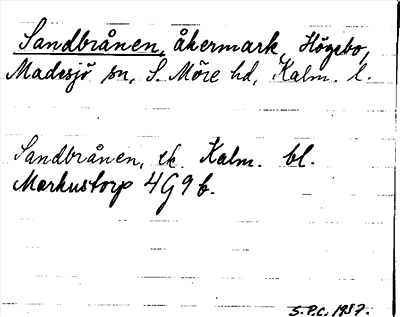 Sandbrånen, åkermark, Högebo,
Madesjö sn, S. Möre hd, Kalm. l.
Sandbrånen, ek. Kalm. bl.
Markustorp 4G9b.
S.P.C. 1937.